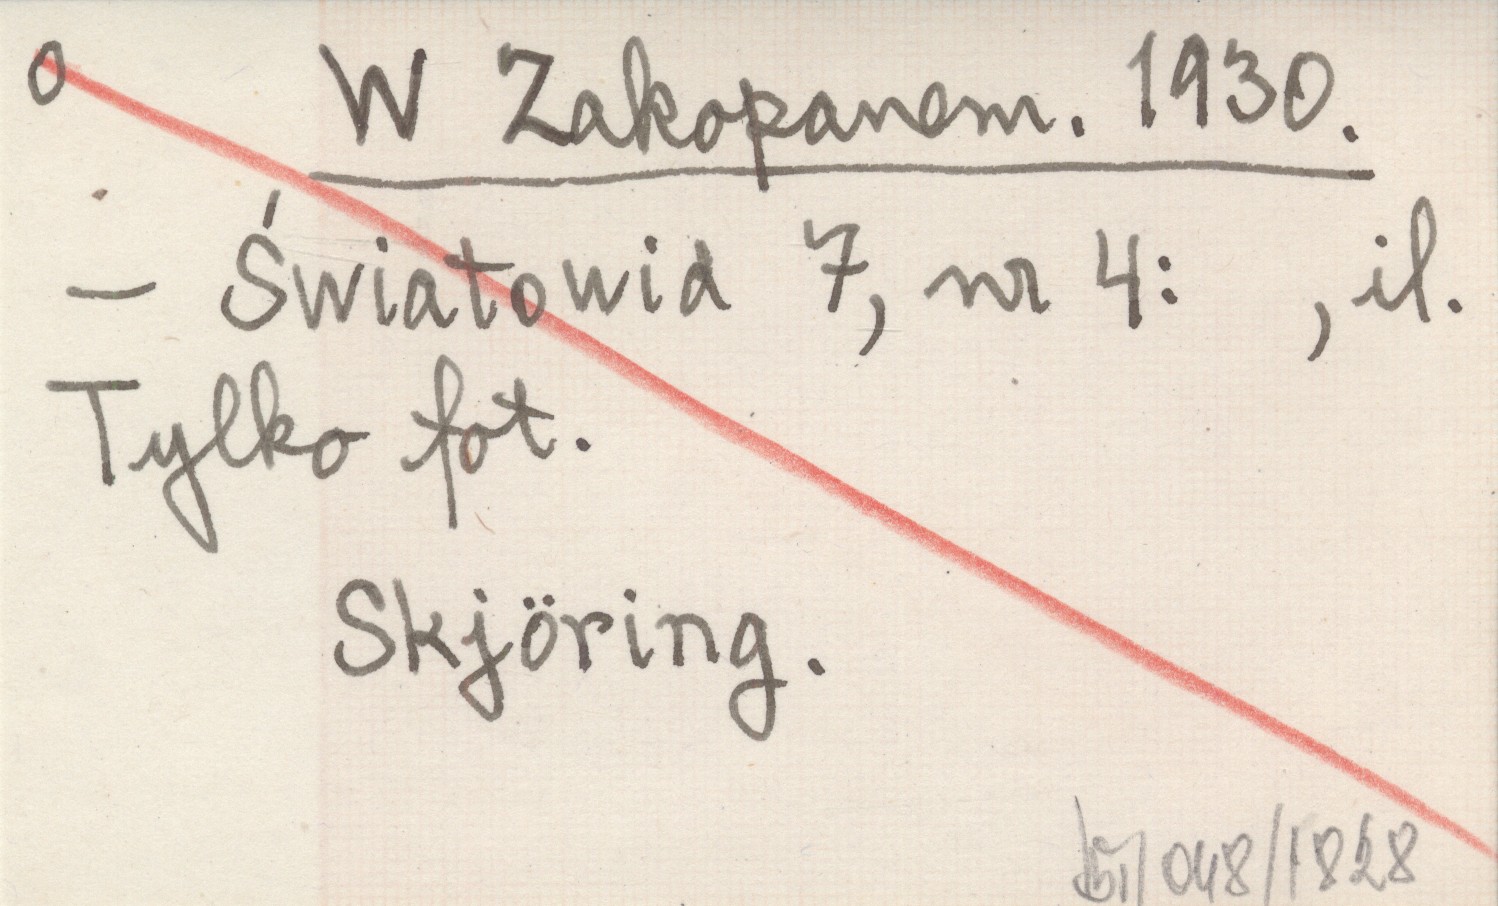 0 W Zakopanem. 1930.
— Światowid 7, nr 4: , il.
Tylko fot.
Skjöring.
048/1828